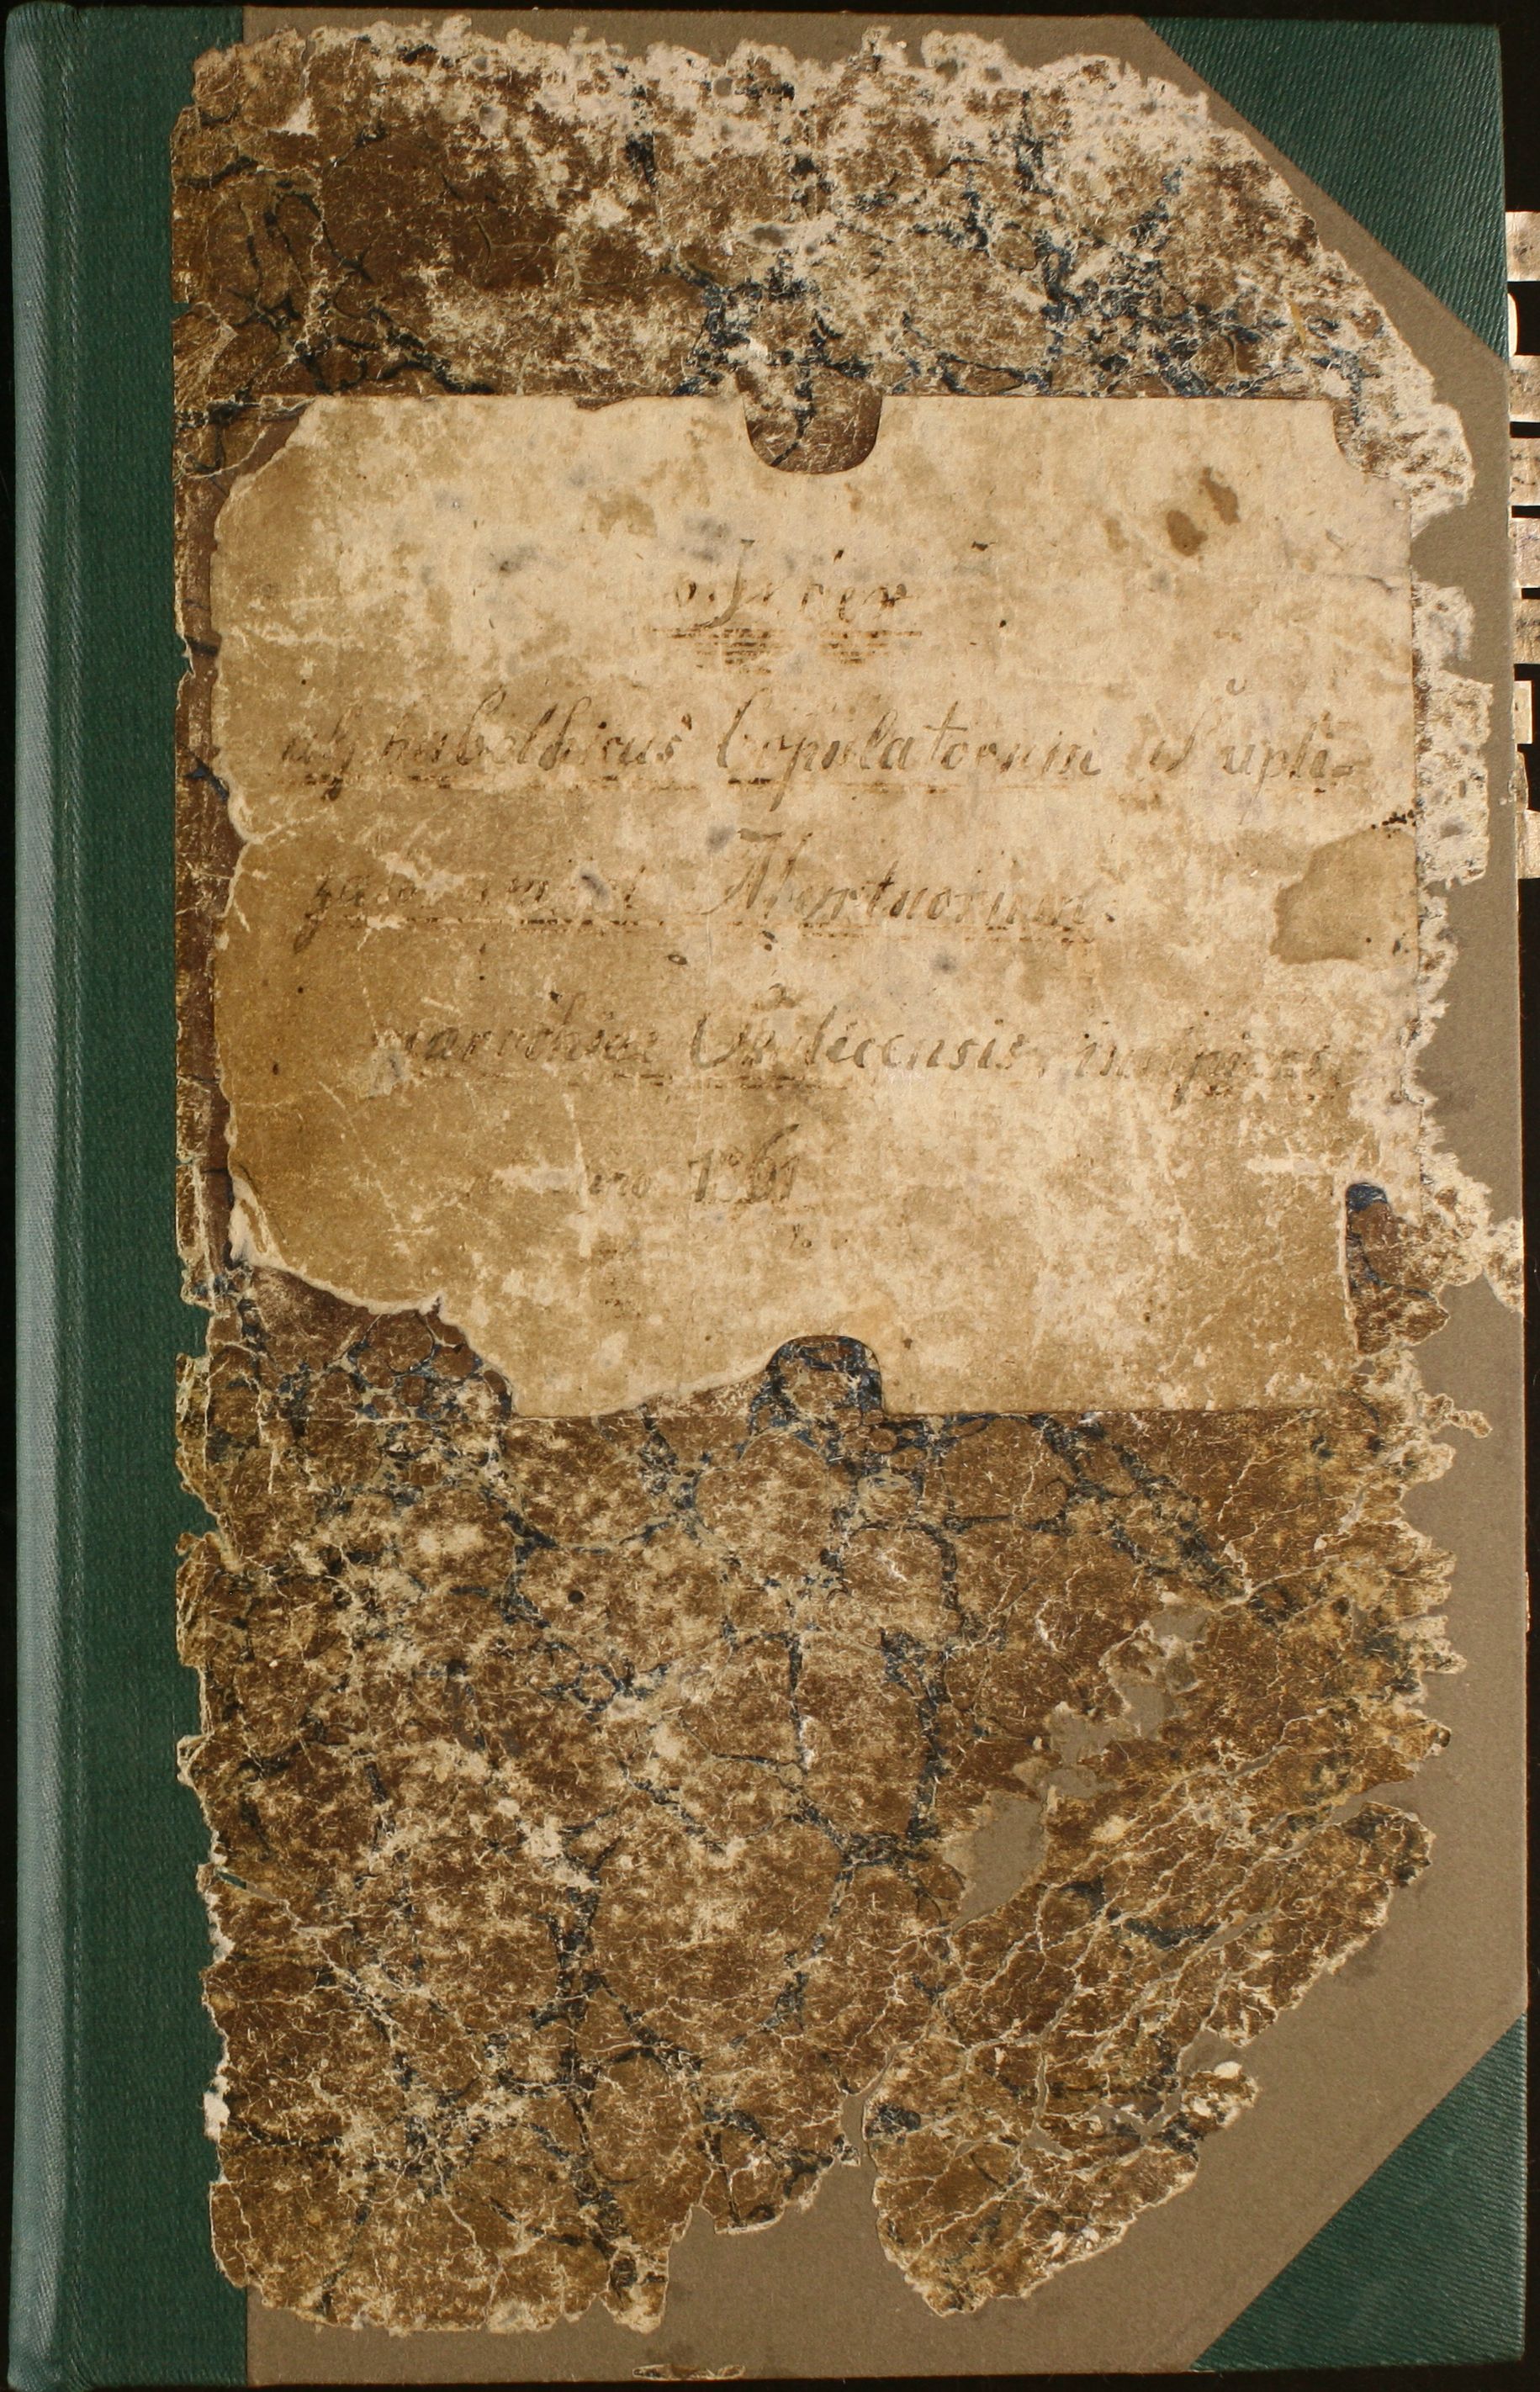 Index
alphabethicus Copulatorum Bapti-
zatorum et Mortuorum.
parochiae incipiens
Anno 1861